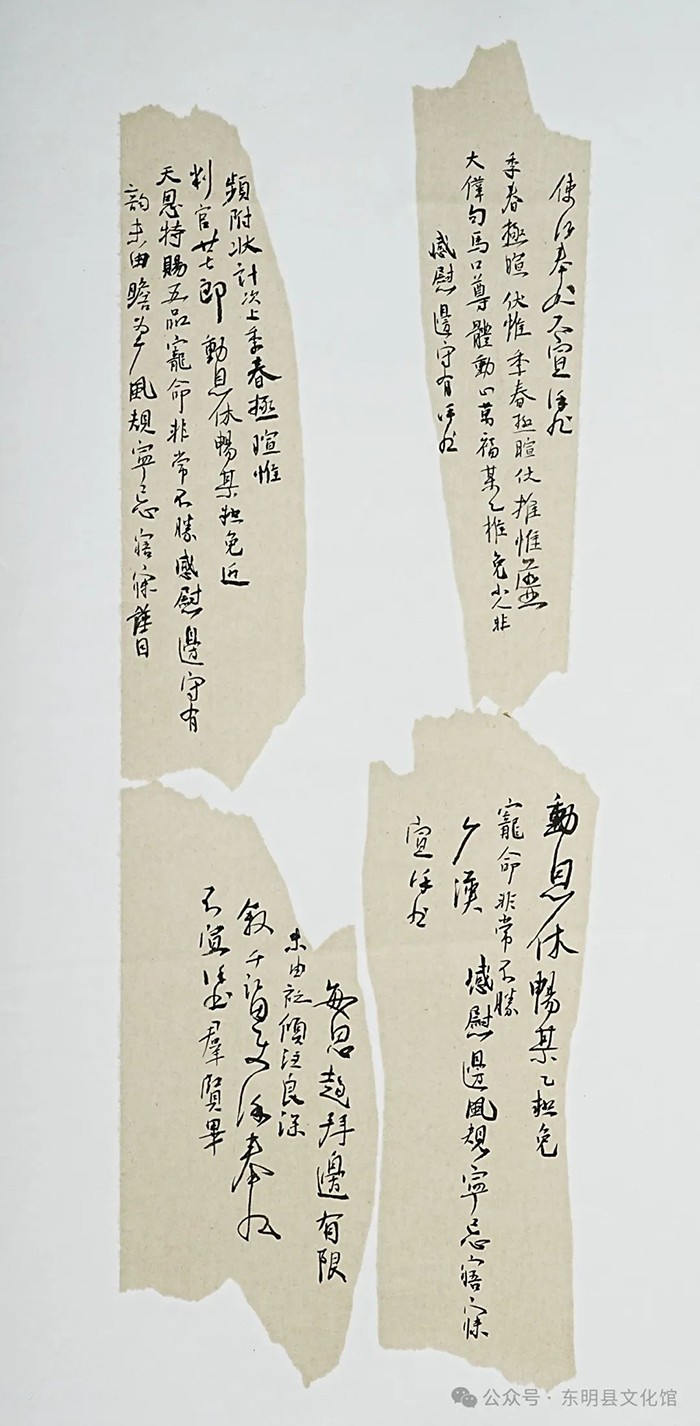 使次奉状不宣谨状
季春極暄伏惟季春極暄伏推惟盖
大僕司馬口尊體動止萬福某乙推免小人非
感慰邊守有谨状
頻附状計次上季春極暄惟
判官廿七郎動息休暢某粗免近
天恩特賜五品寵命非常不勝感慰邊守有
韵未由瞻承風規寧忘寤寐謹日
動息休暢某乙粗免
寵命非常不勝
漢感慰邊風規寧忌寤寐
宣谨状
每思趨拜邊有限
未由披傾注良深
叙千謹奉状
不宣谨状羣賢畢
公众号·东明县文化馆